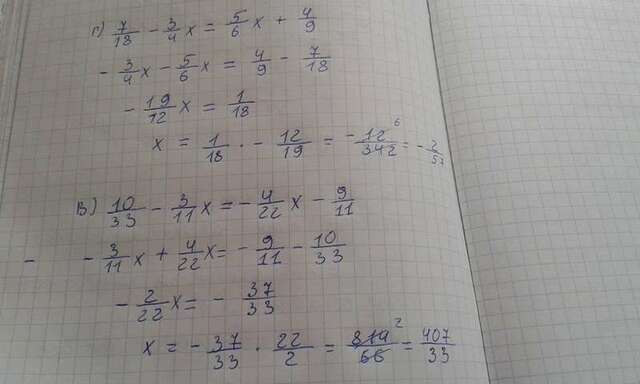 г) 7/18 - 3/4 x = 5/6 x + 4/9
- 3/4 x - 5/6 x = 4/9 - 7/18
- 19/12 x = 1/18
x = 1/18 · - 12/19 = - 12/342 6 = - 2/57
в) 10/33 - 3/11 x = - 4/22 x - 9/11
- - 3/11 x + 4/22 x = - 9/11 - 10/33
- 2/22 x = - 37/33
x = - 37/33 · 22/2 = 814/66 2 = 407/33